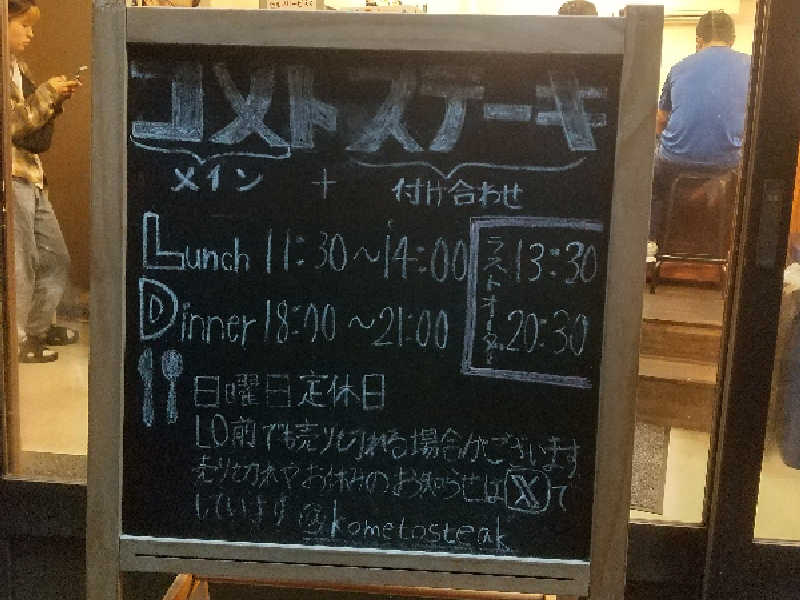 コメトステーキ
メイン + 付け合わせ
Lunch 11:30〜14:00
Dinner 18:00〜21:00
ラストオーダー
13:30
20:30
日曜日定休日
LO前でも売り切れる場合がございます
売り切れやお休みのお知らせはXで
しています @kometosteak